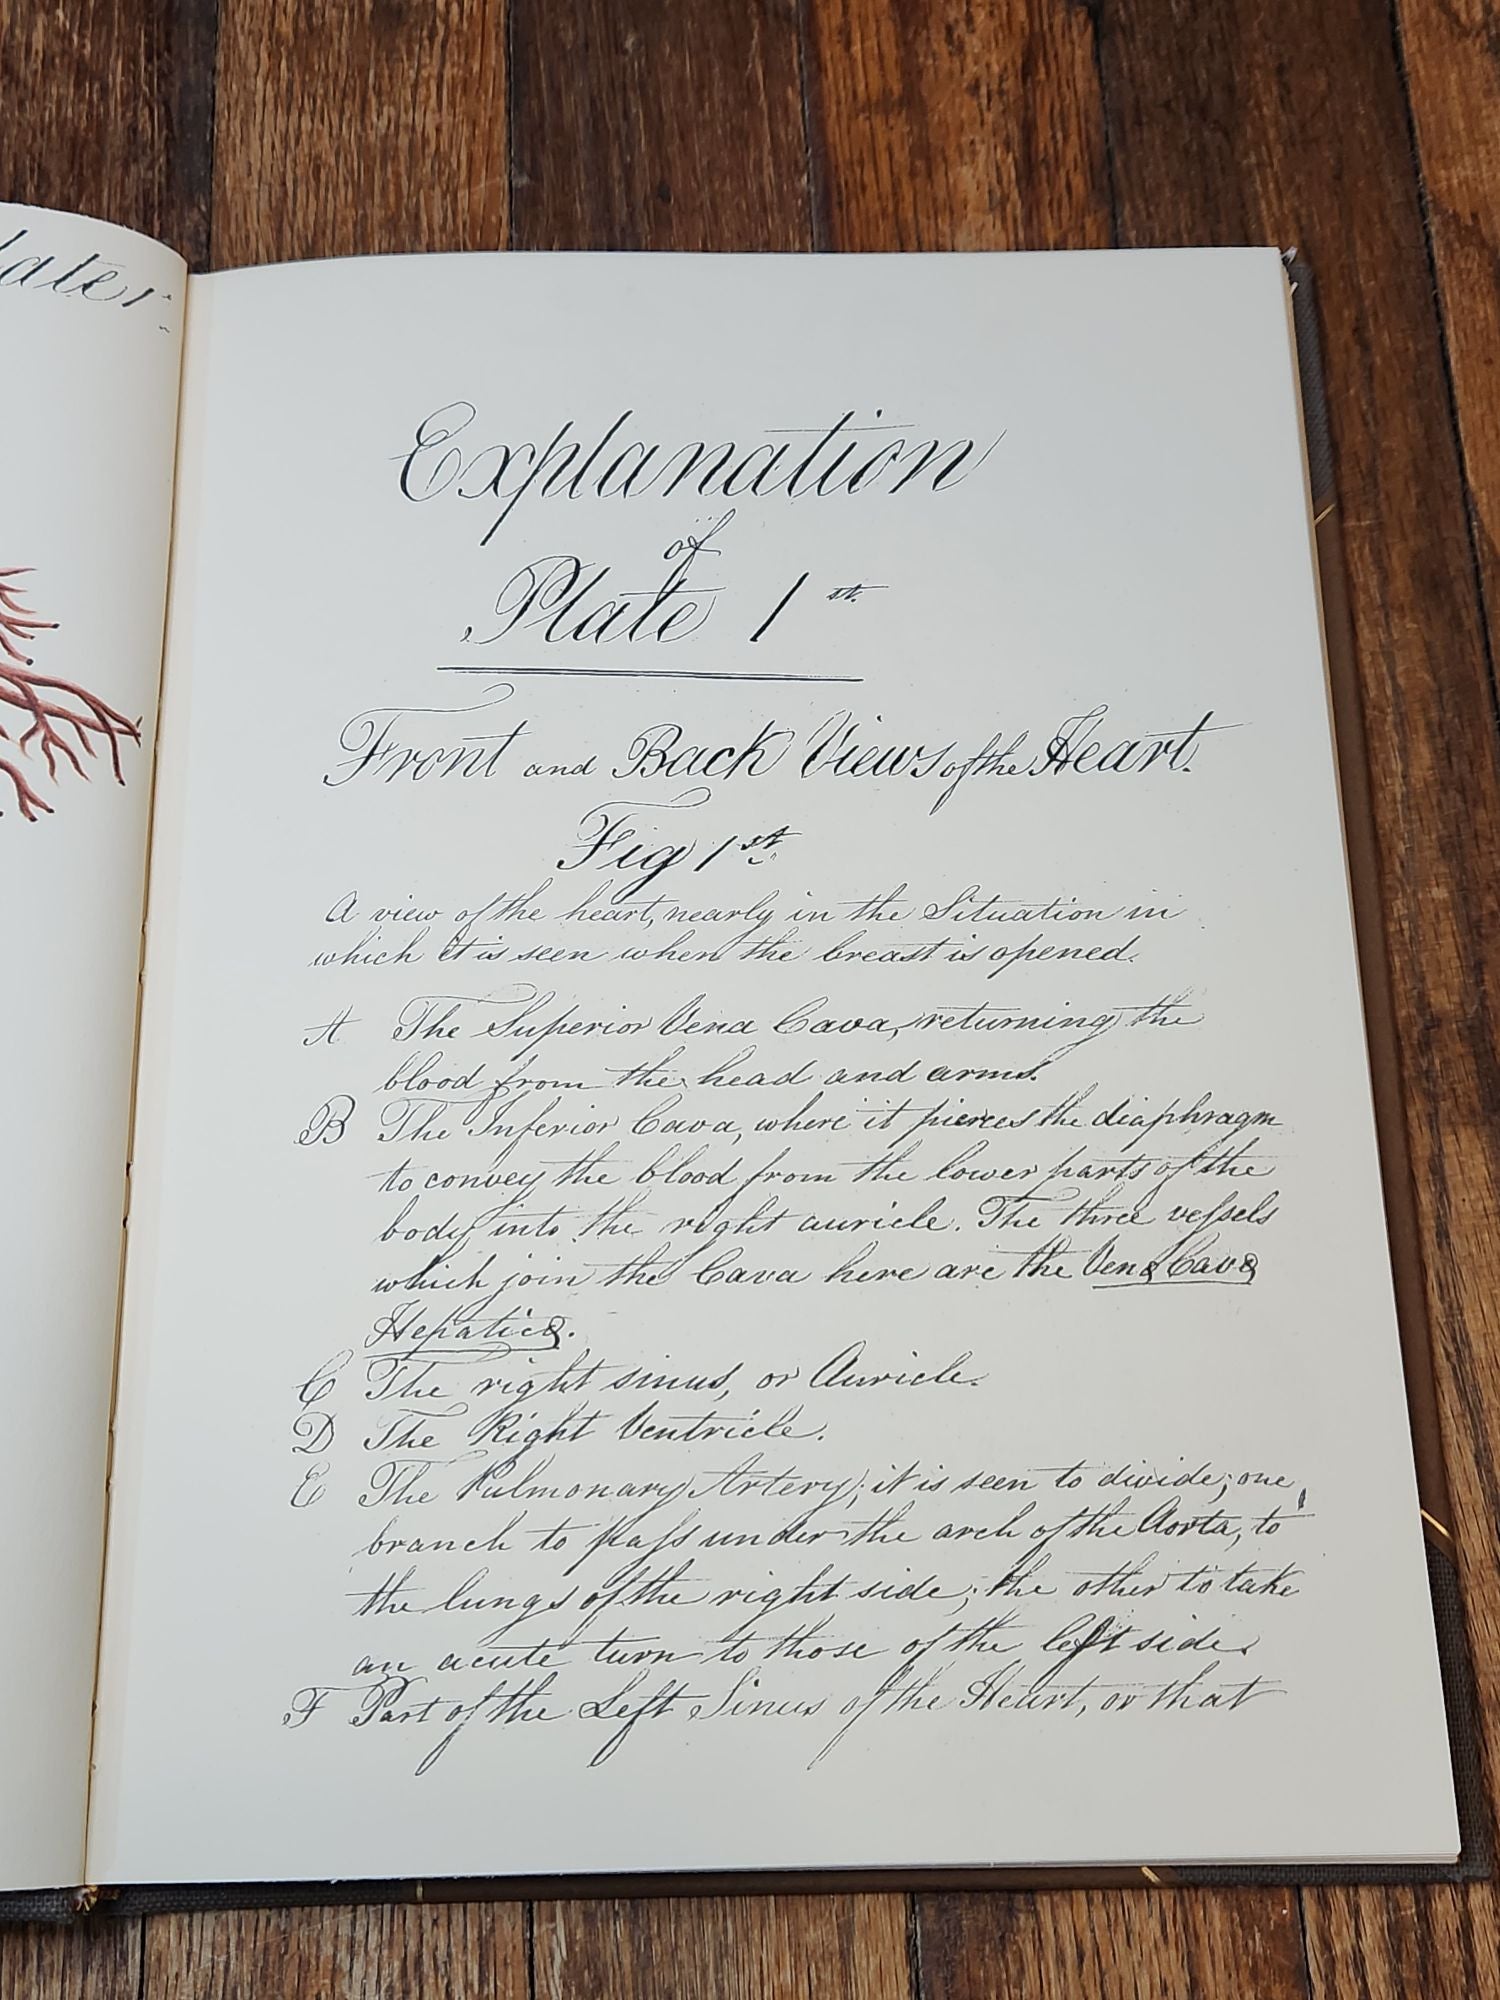 Plate 1st
Explanation
of
Plate 1st.
Front and Back Views of the Heart.
Fig 1st.
A view of the heart, nearly in the Situation in
which it is seen when the breast is opened.
A The Superior Vena Cava, returning the
blood from the head and arms.
B The Inferior Cava, where it pierces the diaphragm
to convey the blood from the lower parts of the
body into the right auricle. The three veſsels
which join the Cava here are the Venæ Cavæ
Hepaticæ.
C The right sinus, or Auricle.
D The Right Ventricle.
E The Pulmonary Artery; it is seen to divide; one
branch to paſs under the arch of the Aorta, to
the lungs of the right side; the other to take
an acute turn to those of the left side.
F Part of the Left Sinus of the Heart, or that